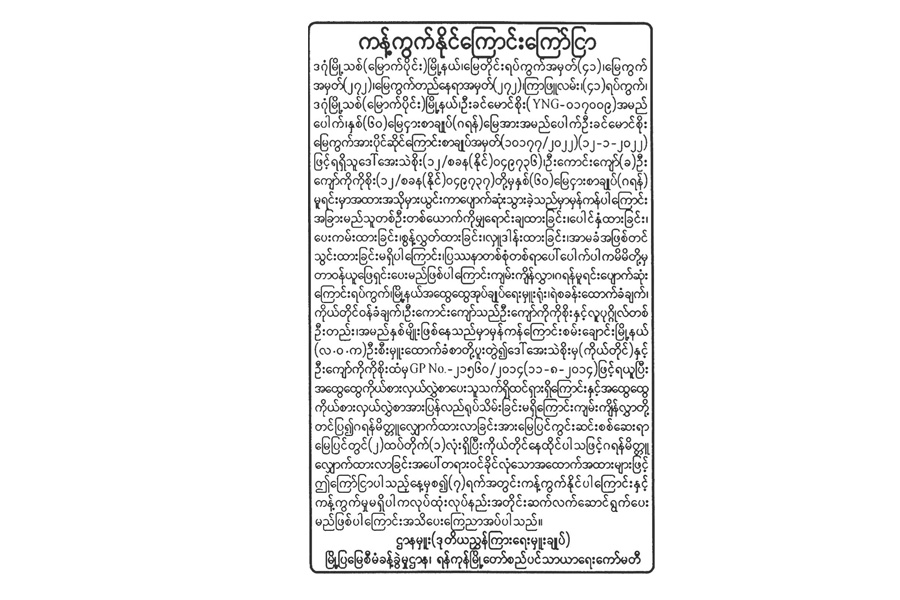 ကန့်ကွက်နိုင်ကြောင်းကြော်ငြာ
ဒဂုံမြို့သစ်(မြောက်ပိုင်း)မြို့နယ်၊မြေတိုင်းရပ်ကွက်အမှတ်(၄၁)၊မြေကွက်
အမှတ်(၂၇၂)၊မြေကွက်တည်နေရာအမှတ်(၂၇၂)၊ကြာဖြူလမ်း၊(၄၁)ရပ်ကွက်၊
ဒဂုံမြို့သစ်(မြောက်ပိုင်း)မြို့နယ်၊ဦးခင်မောင်စိုး(YNG-၀၁၇၀၀၉)အမည်
ပေါက်၊နှစ်(၆၀)မြေငှားစာချုပ်(ဂရန်)မြေအားအမည်ပေါက်ဦးခင်မောင်စိုး
မြေကွက်အားပိုင်ဆိုင်ကြောင်းစာချုပ်အမှတ်(၁၀၁၇၇/၂၀၂၂)(၁၂-၁-၂၀၂၂)
ဖြင့်ရရှိသူဒေါ်အေးသဲစိုး(၁၂/စခန(နိုင်)၀၄၉၇၃၆)၊ဦးကောင်းကျော်(ခ)ဦး
ကျော်ကိုကိုစိုး(၁၂/စခန(နိုင်)၀၄၉၇၃၇)တို့မှနှစ်(၆၀)မြေငှားစာချုပ်(ဂရန်)
မူရင်းမှာအထားအသိုမှားယွင်းကာပျောက်ဆုံးသွားခဲ့သည်မှာမှန်ကန်ပါကြောင်း
အခြားမည်သူတစ်ဦးတစ်ယောက်ကိုမျှရောင်းချထားခြင်း၊ပေါင်နှံထားခြင်း၊
ပေးကမ်းထားခြင်း၊စွန့်လွှတ်ထားခြင်း၊လှူဒါန်းထားခြင်း၊အာမခံအဖြစ်တင်
သွင်းထားခြင်းမရှိပါကြောင်း၊ပြဿနာတစ်စုံတစ်ရာပေါ်ပေါက်ပါကမိမိတို့မှ
တာဝန်ယူဖြေရှင်းပေးမည်ဖြစ်ပါကြောင်းကျမ်းကျိန်လွှာ၊ဂရန်မူရင်းပျောက်ဆုံး
ကြောင်းရပ်ကွက်၊မြို့နယ်အထွေထွေအုပ်ချုပ်ရေးမှူးရုံး၊ရဲစခန်းထောက်ခံချက်၊
ကိုယ်တိုင်ဝန်ခံချက်၊ဦးကောင်းကျော်သည်ဦးကျော်ကိုကိုစိုးနှင့်လူပုဂ္ဂိုလ်တစ်
ဦးတည်း၊အမည်နှစ်မျိုးဖြစ်နေသည်မှာမှန်ကန်ကြောင်းစမ်းချောင်းမြို့နယ်
(လ.ဝ.က)ဦးစီးမှူးထောက်ခံစာတို့ပူးတွဲ၍ဒေါ်အေးသဲစိုးမှ(ကိုယ်တိုင်)နှင့်
ဦးကျော်ကိုကိုစိုးထံမှGP No.-၂၁၅၆၀/၂၀၁၄(၁၁-၈-၂၀၁၄)ဖြင့်ရယူပြီး
အထွေထွေကိုယ်စားလှယ်လွှဲစာပေးသူသက်ရှိထင်ရှားရှိကြောင်းနှင့်အထွေထွေ
ကိုယ်စားလှယ်လွှဲစာအားပြန်လည်ရုပ်သိမ်းခြင်းမရှိကြောင်းကျမ်းကျိန်လွှာတို့
တင်ပြ၍ဂရန်မိတ္တူလျှောက်ထားလာခြင်းအားမြေပြင်ကွင်းဆင်းစစ်ဆေးရာ
မြေပြင်တွင်(၂)ထပ်တိုက်(၁)လုံးရှိပြီးကိုယ်တိုင်နေထိုင်ပါသဖြင့်ဂရန်မိတ္တူ
လျှောက်ထားလာခြင်းအပေါ်တရားဝင်ခိုင်လုံသောအထောက်အထားများဖြင့်
ဤကြော်ငြာပါသည့်နေ့မှစ၍(၇)ရက်အတွင်းကန့်ကွက်နိုင်ပါကြောင်းနှင့်
ကန့်ကွက်မှုမရှိပါကလုပ်ထုံးလုပ်နည်းအတိုင်းဆက်လက်ဆောင်ရွက်ပေး
မည်ဖြစ်ပါကြောင်းအသိပေးကြေညာအပ်ပါသည်။
ဌာနမှူး(ဒုတိယညွှန်ကြားရေးမှူးချုပ်)
မြို့ပြမြေစီမံခန့်ခွဲမှုဌာန၊ ရန်ကုန်မြို့တော်စည်ပင်သာယာရေးကော်မတီ